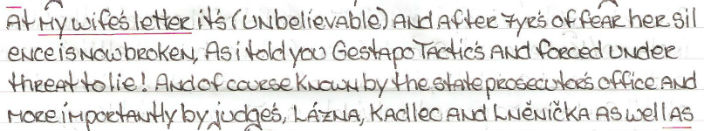 At My wife's letter it's (unbelievable) And After 7yrs of fear her sil
ence is now broken, As i told you Gestapo Tactic's And forced under
threat to lie! And of course known by the state prosecutor's office And
more importantly by judge's, LÁZNA, KAdlec And Lněnička As well As